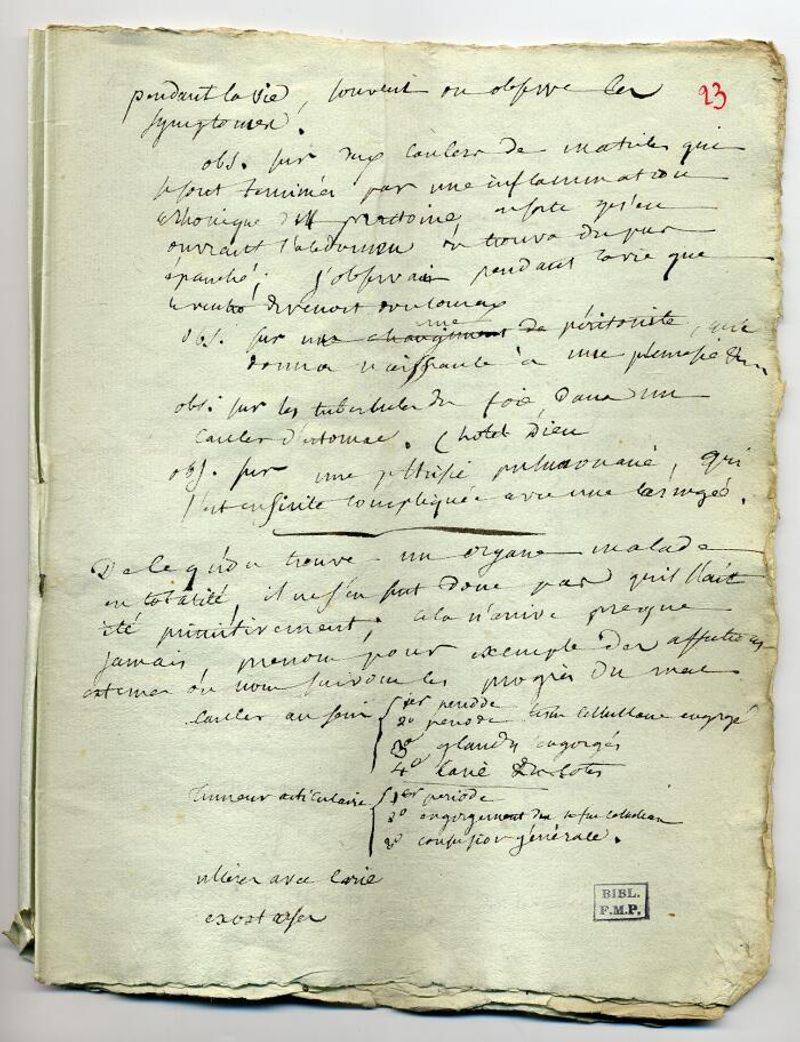 pendant la vie, souvent on observe les 23
symptomes.
obs. sur deux cancers de matrice qui
se sont terminés par une inflammation
chronique du peritoine, ensorte qu'en
ouvrant l'abdomen on trouva du pus
épanché; j'observai pendant la vie que
le ventre devenoit douloureux
obs. sur une changement de péritonite, qui
donna naissance à une
obs. sur les tubercules du foie, dans un
cancer d'estomac. (hotel Dieu
obs. sur une phtisie pulmonaire, qui
s'est ensuite compliquée avec une laringée.
De ce qu'on trouve un organe malade
en totalité, il ne s'en suit donc pas qu'il l'ait
été primitivement; cela n'arrive presque
jamais, prenons pour exemple des affections
externes où nous suivons les progrès du mal
cancer au sein 1er periode
2o periode tissu cellulaire engorgé
3o glandes engorgés
4o carie des cotes
Tumeur articulaire 1er periode
2o engorgement du tissu cellulaire
3o confusion générale.
ulceres avec carie
exostoses
BIBL.
F.M.P.